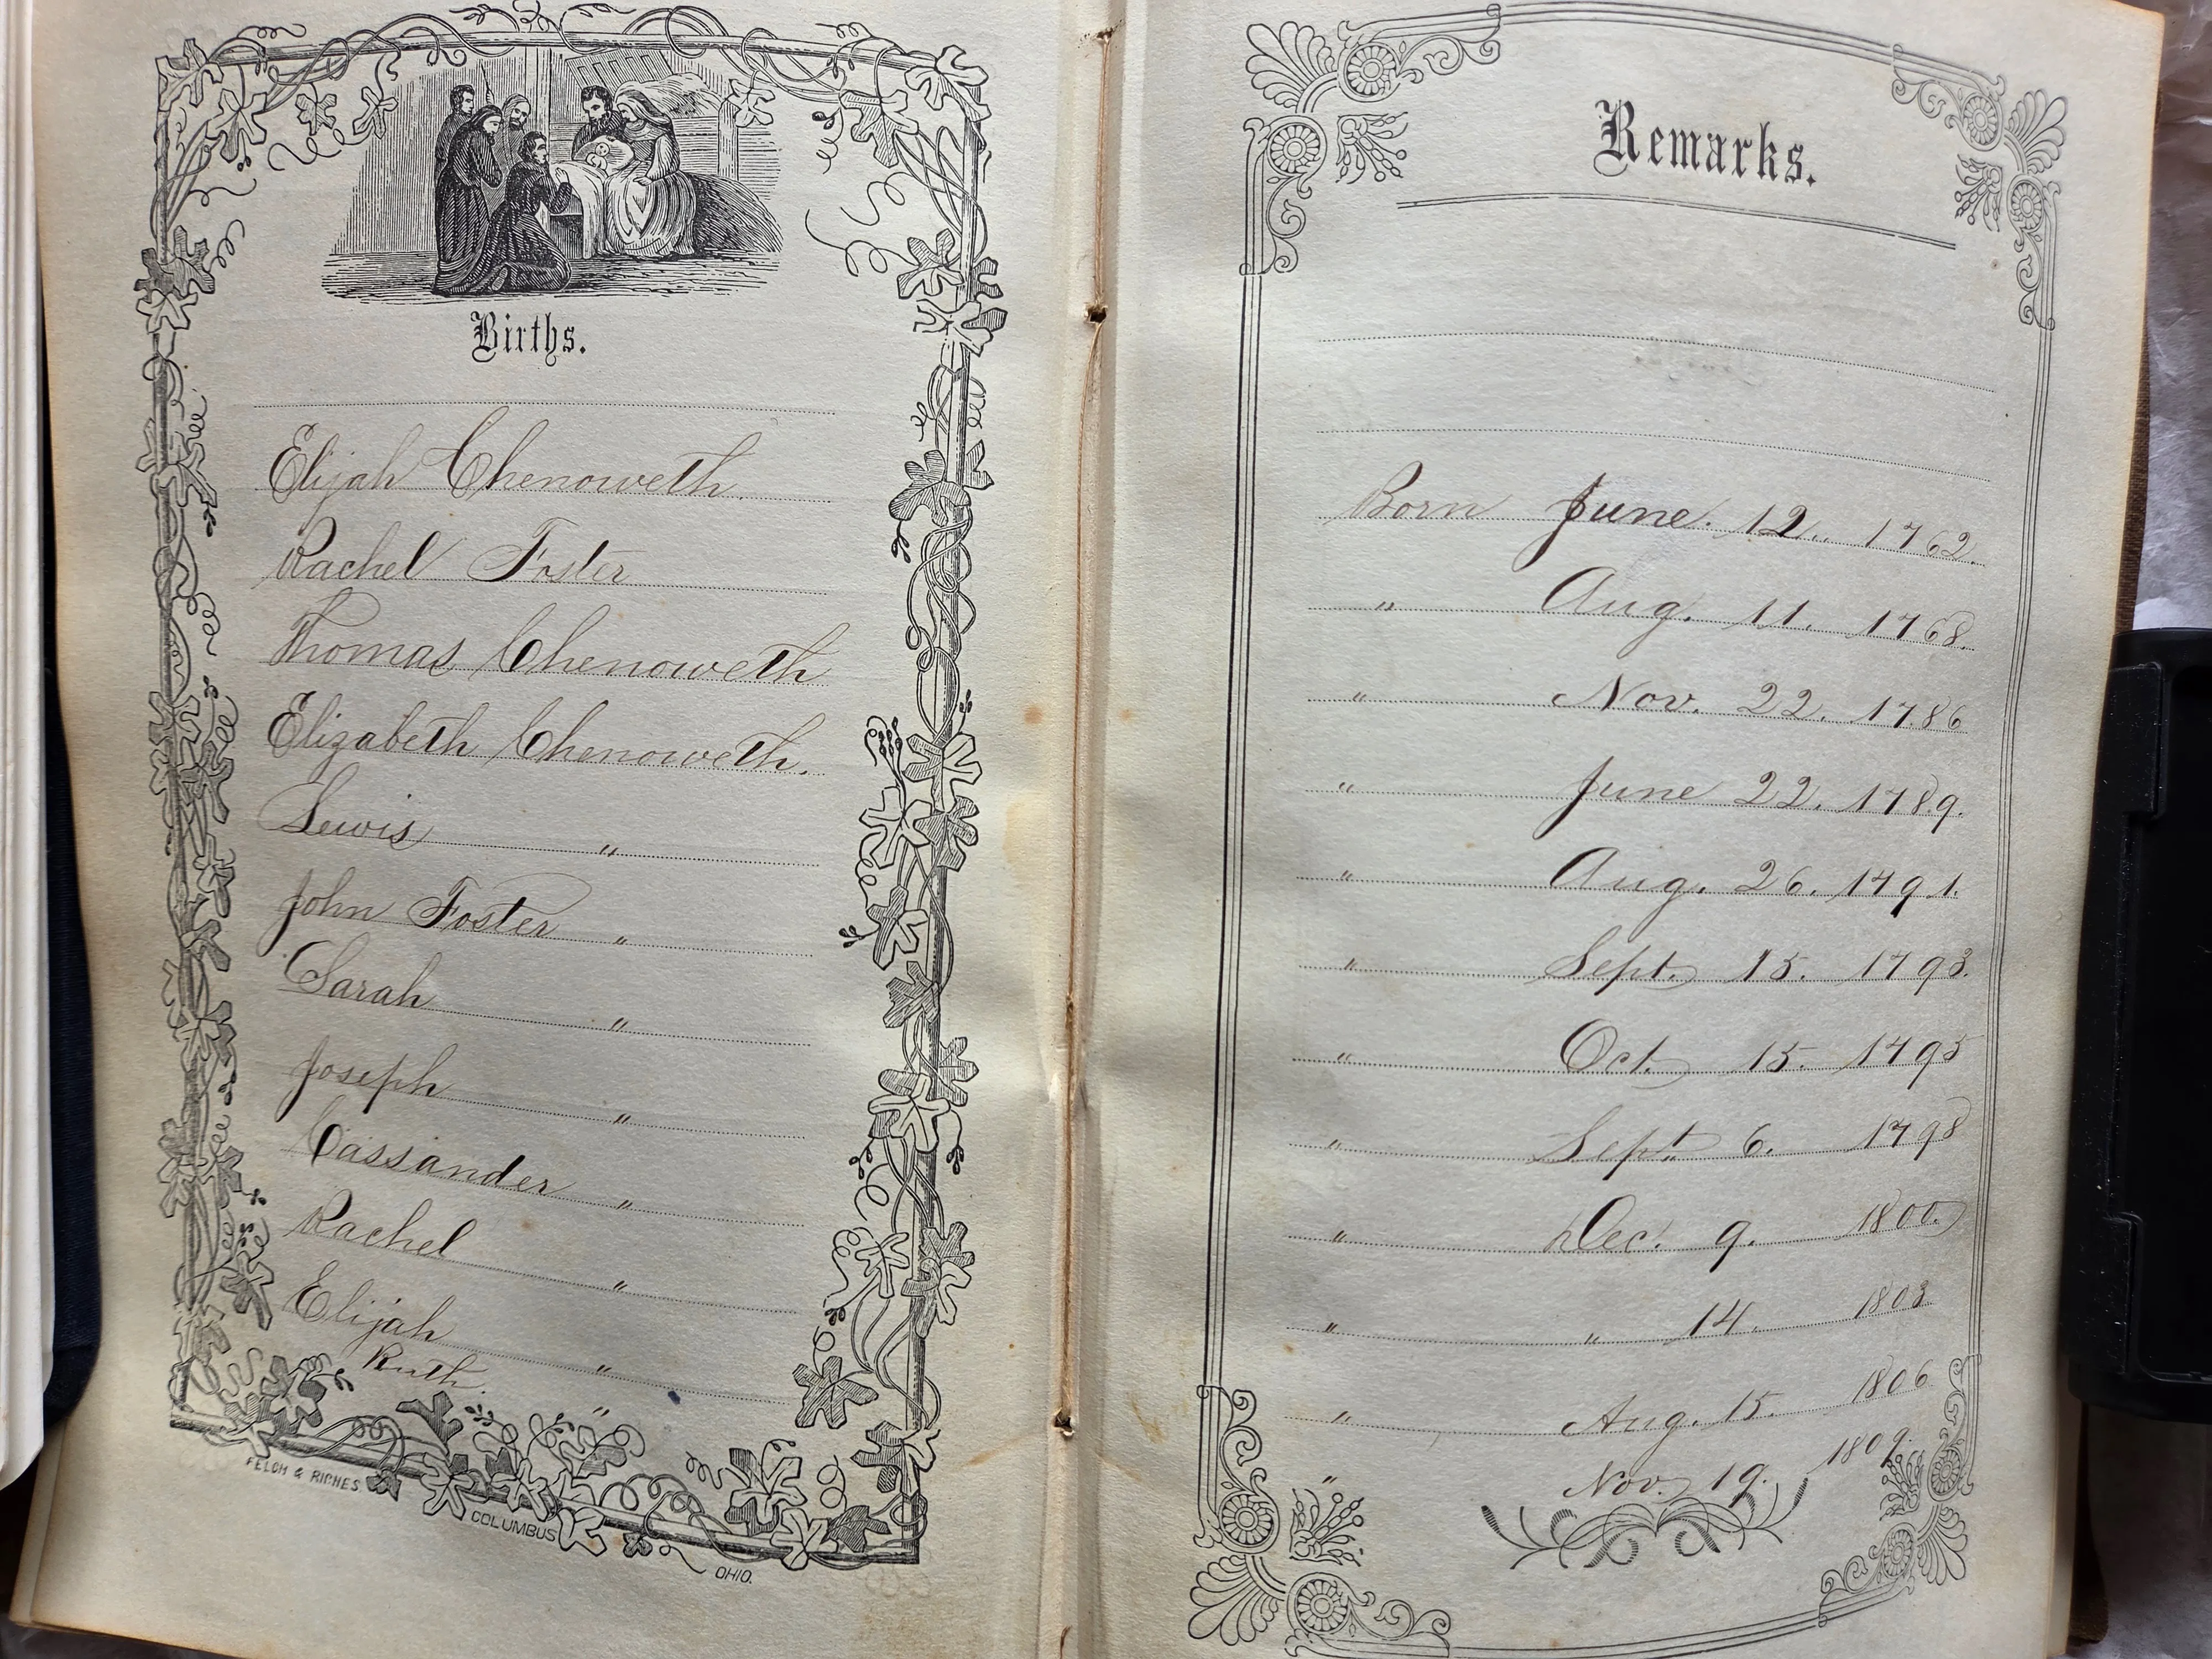 Births.
Elijah Chenoweth.
Rachel Foster
Thomas Chenoweth
Elizabeth Chenoweth.
Lewis "
John Foster "
Sarah "
Joseph "
Cassander "
Rachel "
Elijah "
Ruth. "
FELCH & RICHES
COLUMBUS
OHIO.
Remarks.
Born June. 12.. 1762.
" Aug. 11. 1768.
" Nov. 22. 1786
" June 22. 1789.
" Aug. 26. 1791.
" Sept. 15. 1793.
" Oct. 15. 1795
" Sept. 6. 1798
" Dec. 9. 1800.
" " 14. 1803.
" Aug. 15. 1806
" Nov. 19. 1809.